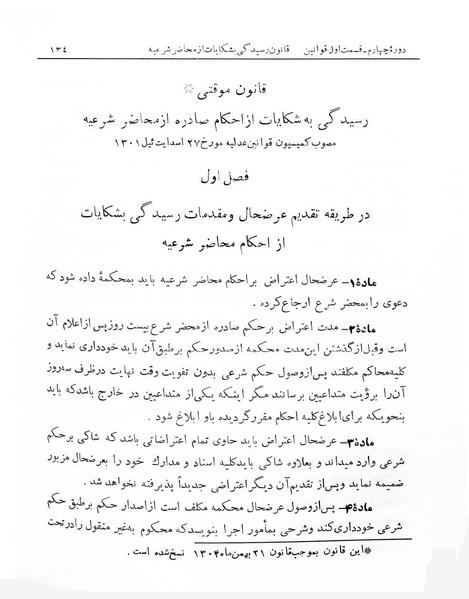 دورهٔ چهارم ـ قسمت اول قوانین    قانون رسیدگی بشکایات از محاضر شرعیه    ۱۳۴
قانون موقتی *
رسیدگی به شکایات از احکام صادره از محاضر شرعیه
مصوب کمیسیون قوانین عدلیه مورخ ۲۷ اسد ایت ئیل ۱۳۰۱
فصل اول
در طریقه تقدیم عرضحال و مقدمات رسیدگی بشکایات
از احکام محاضر شرعیه
مادهٔ ۱ـ عرضحال اعتراض بر احکام محاضر شرعیه باید بمحکمهٔ داده شود که
دعوی را بمحضر شرع ارجاع کرده .
مادهٔ ۲ـ مدت اعتراض بر حکم صادره از محضر شرع بیست روز پس از اعلام آن
است و قبل از گذشتن این مدت محکمه از صدور حکم بر طبق آن باید خودداری نماید و
کلیه محاکم مکلفند پس از وصول حکم شرعی بدون تفویت وقت نهایت در ظرف سه روز
آن را برؤیت متداعیین برسانند مگر اینکه یکی از متداعیین در خارج باشد که باید
بنحویکه برای ابلاغ کلیه احکام مقرر گردیده باو ابلاغ شود .
مادهٔ ۳ـ عرضحال اعتراض باید حاوی تمام اعتراضاتی باشد که شاکی بر حکم
شرعی وارد میداند و بعلاوه شاکی باید کلیه اسناد و مدارک خود را بعرضحال مزبور
ضمیمه نماید و پس از تقدیم آن دیگر اعتراض جدیداً پذیرفته نخواهد شد .
مادهٔ ۴ـ پس از وصول عرضحال محکمه مکلف است از اصدار حکم بر طبق حکم
شرعی خودداری کند و شرحی بمأمور اجرا بنویسد که محکوم به غیر منقول را در تحت
* این قانون بموجب قانون ۲۱ بهمن ماه ۱۳۰۴ نسخ شده است .